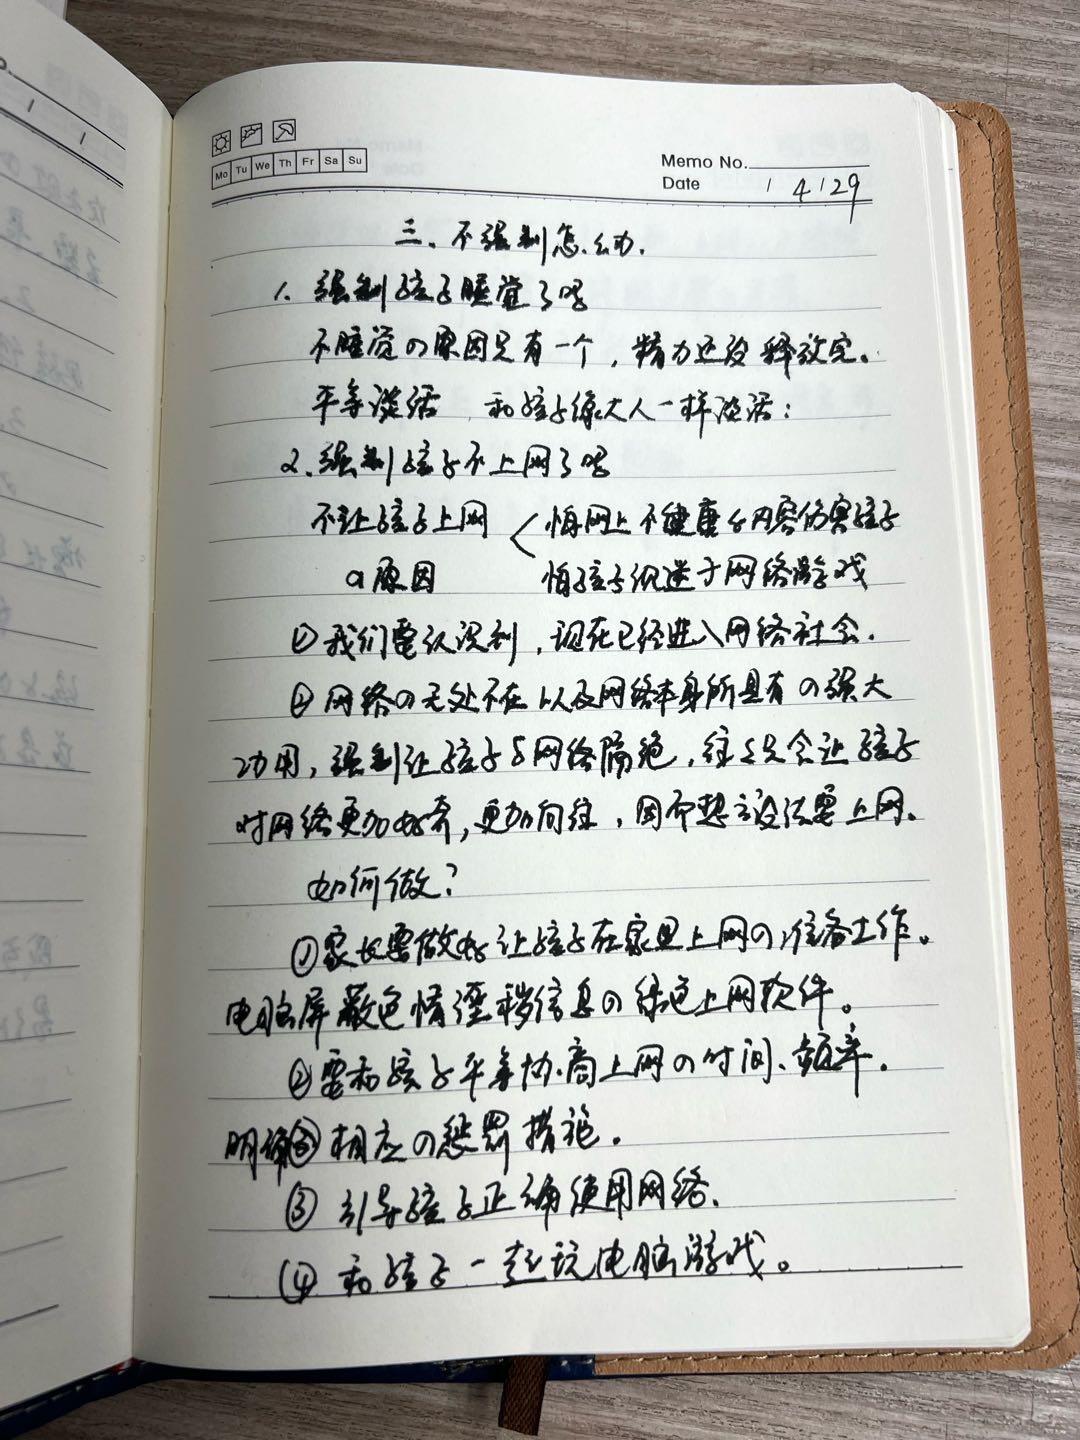 Mo Tu We Th Fr Sa Su
Memo No.
Date / 4 / 29
三、不强制怎么办.
1. 强制孩子睡觉了吗
不睡觉の原因只有一个，精力还没释放完。
平等谈话，和孩子像大人一样谈话：
2. 强制孩子不上网了吗
不让孩子上网 怕网上不健康的内容伤害孩子
の原因 怕孩子沉迷于网络游戏
① 我们要认识到，现在已经进入网络社会.
② 网络の无处不在以及网络本身所具有の强大
功用，强制让孩子与网络隔绝，往往只会让孩子
对网络更加好奇，更加向往，因而想方设法要上网。
如何做？
① 家长要做好让孩子在家里上网の准备工作。
电脑屏蔽色情淫秽信息の绿色上网软件。
② 要和孩子平等协商上网の时间、频率.
明确 相应の惩罚措施.
③ 引导孩子正确使用网络.
④ 和孩子一起玩电脑游戏。